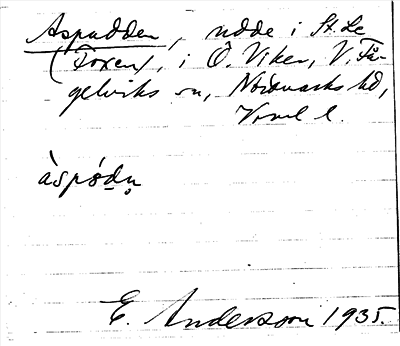 Aspudden, udde i St. Le
(Foxen), i Ö. Viker, V. Få-
gelviks sn, Nordmarks hd,
Vrml l.
àspódṇ
E. Anderson 1935.